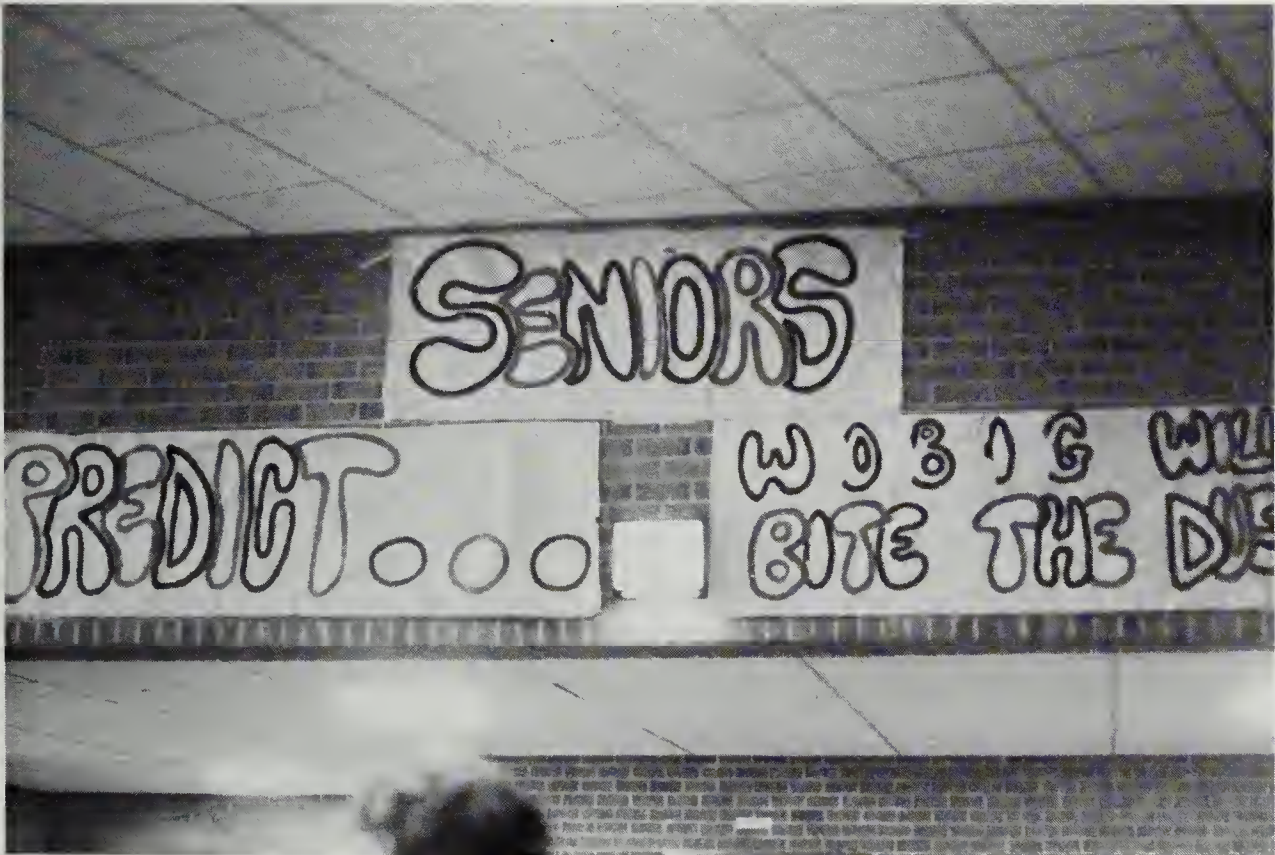 SENIORS
PREDICT...
WOBIG WILL
BITE THE DUS